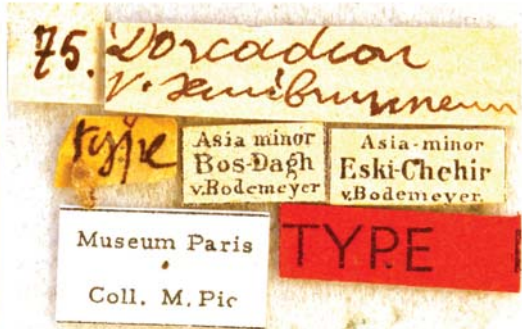 75.
Dorcadion
v. semibrunneum
type
Asia minor
Bos-Dagh
v.Bodemeyer
Asia-minor
Eski-Chehir
v.Bodemeyer.
Museum Paris
Coll. M. Pic
TYPE